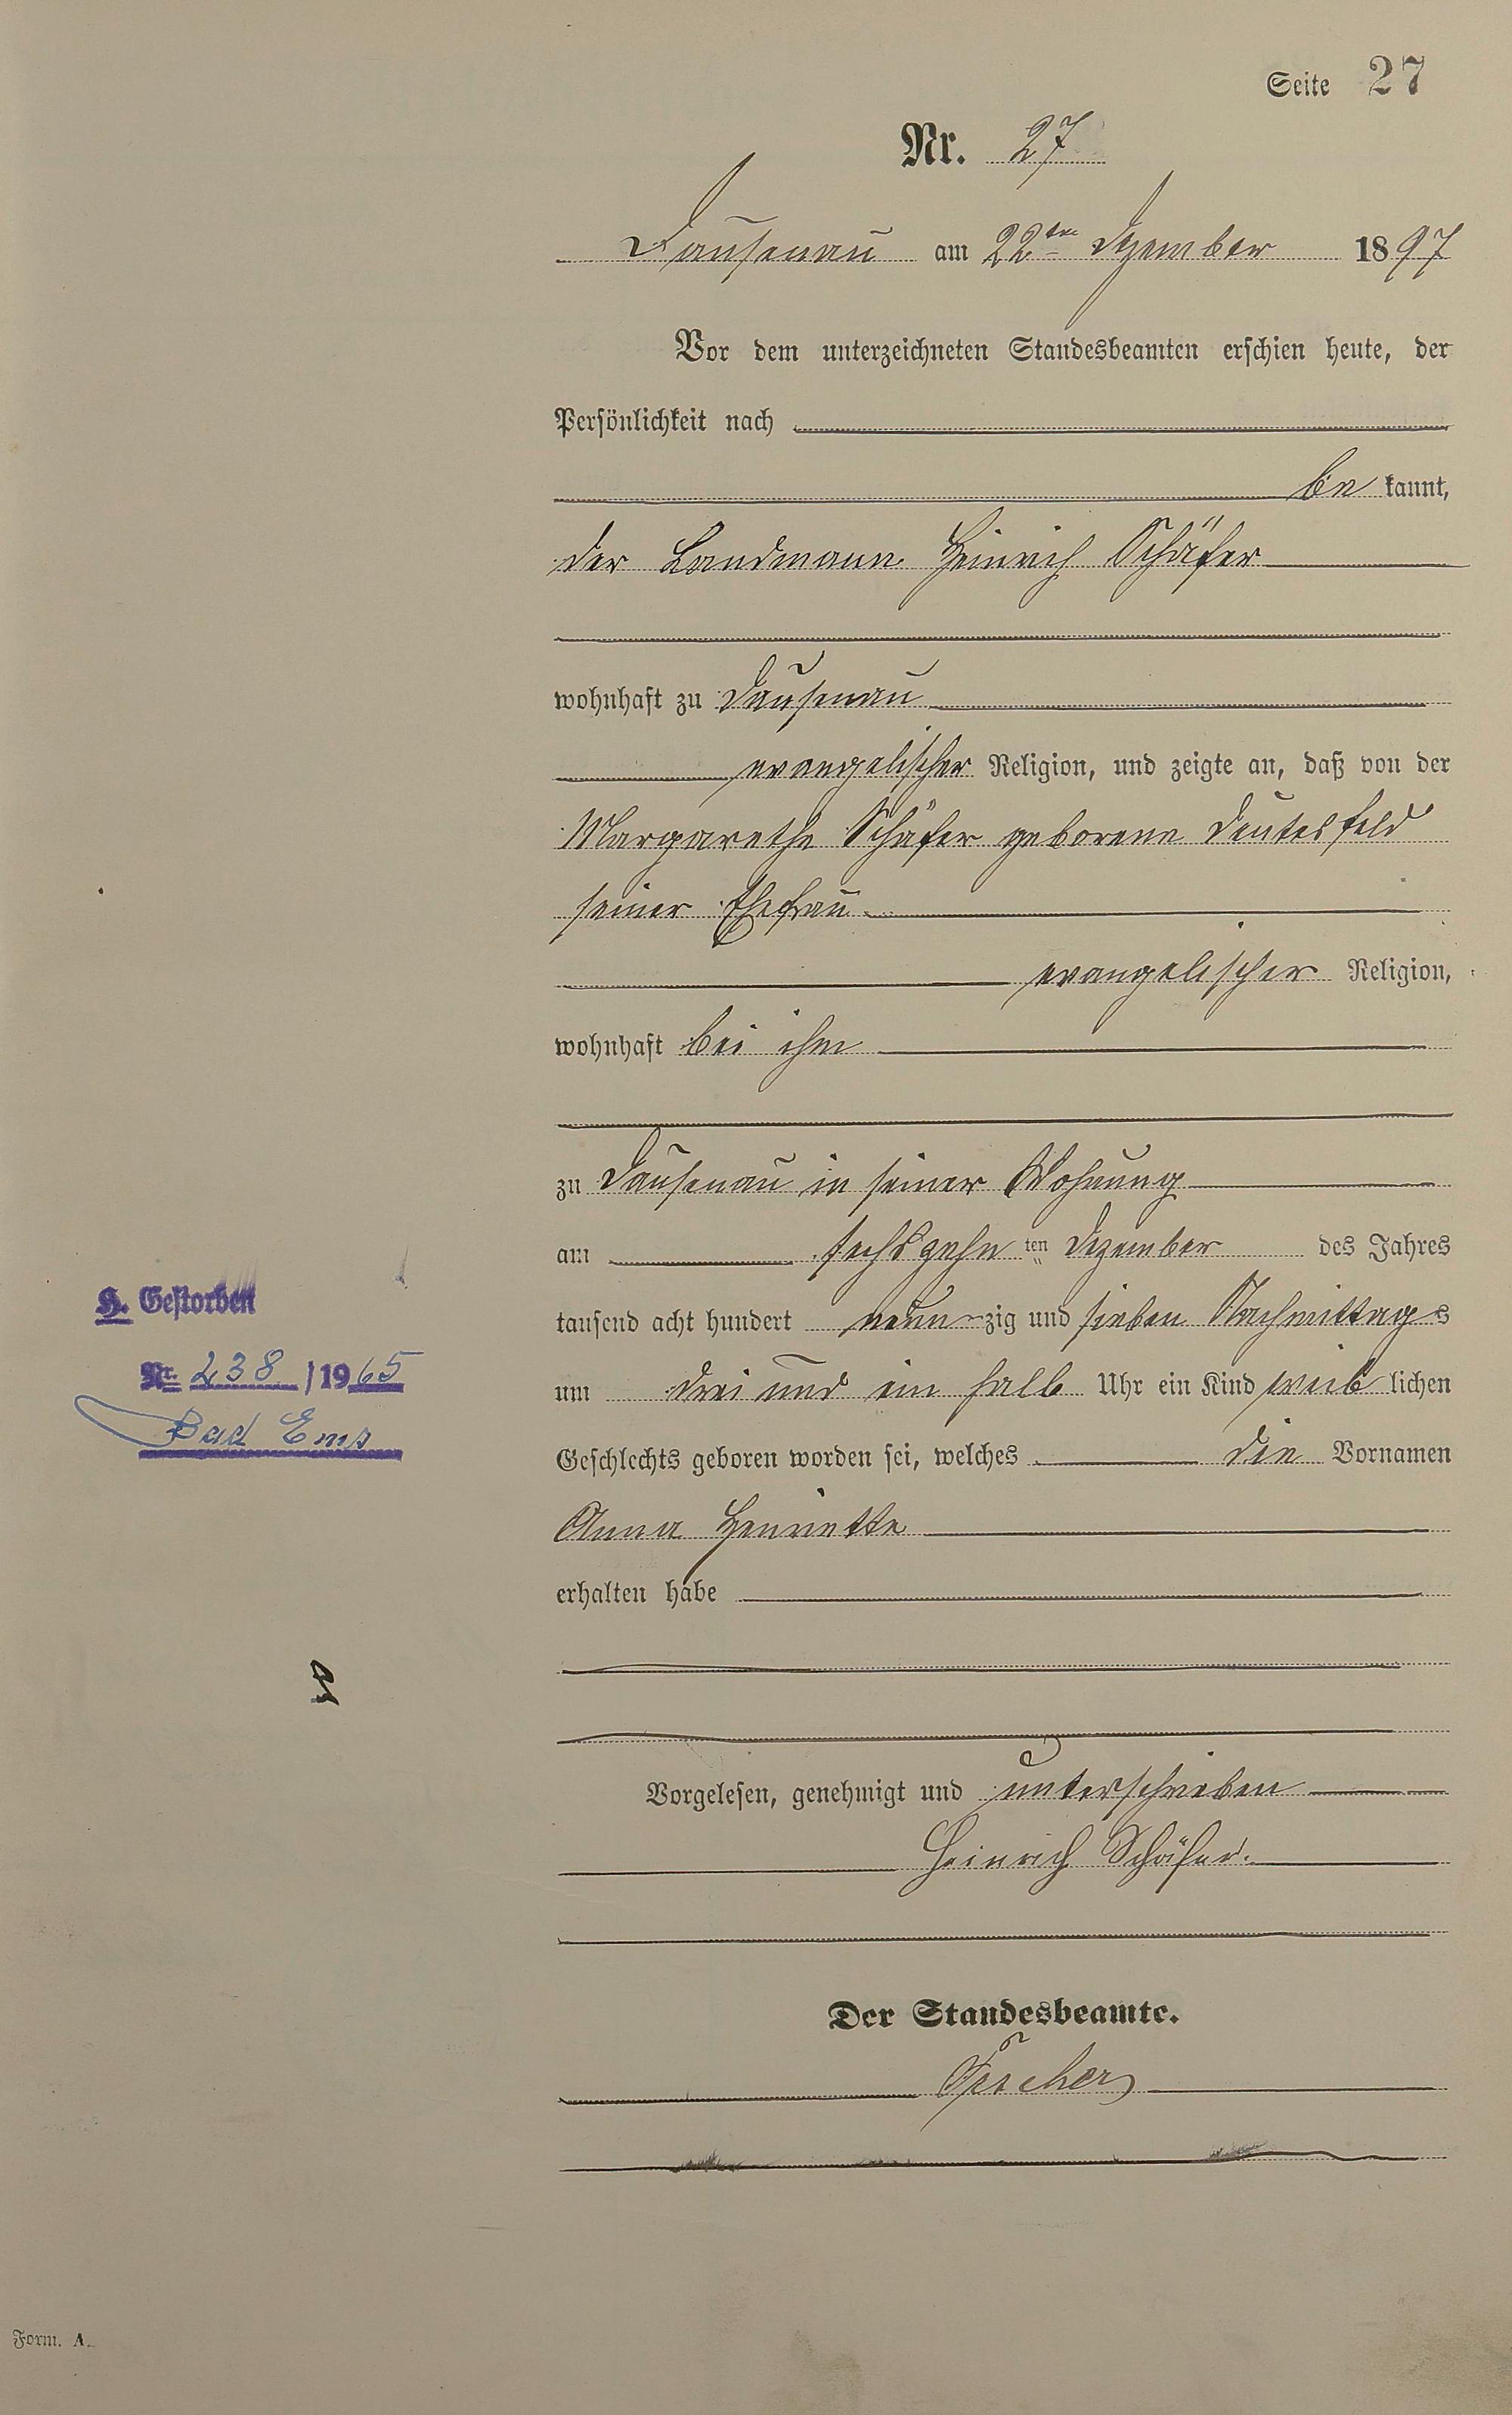 Seite 27
Nr. 27
Dausenau am 22ten Dezember 1897
Vor dem unterzeichneten Standesbeamten erschien heute, der
Persönlichkeit nach
be kannt,
der Landmann Heinrich Schäfer
wohnhaft zu Dausenau
evangelischer Religion, und zeigte an, daß von der
Margarethe Schäfer geborene Deutesfeld
seiner Ehefrau
evangelischer Religion,
wohnhaft bei ihm
zu Dausenau in seiner Wohnung
am sechszehn ten Dezember des Jahres
tausend acht hundert neun zig und sieben Nachmittags
um drei und ein halb Uhr ein Kind weib lichen
Geschlechts geboren worden sei, welches die Vornamen
Anna Henriette
erhalten habe
Vorgelesen, genehmigt und unterschrieben
Heinrich Schäfer.
Der Standesbeamte.
H. Gestorben
Nr. 238 / 1965
Bad Ems
Form. A.